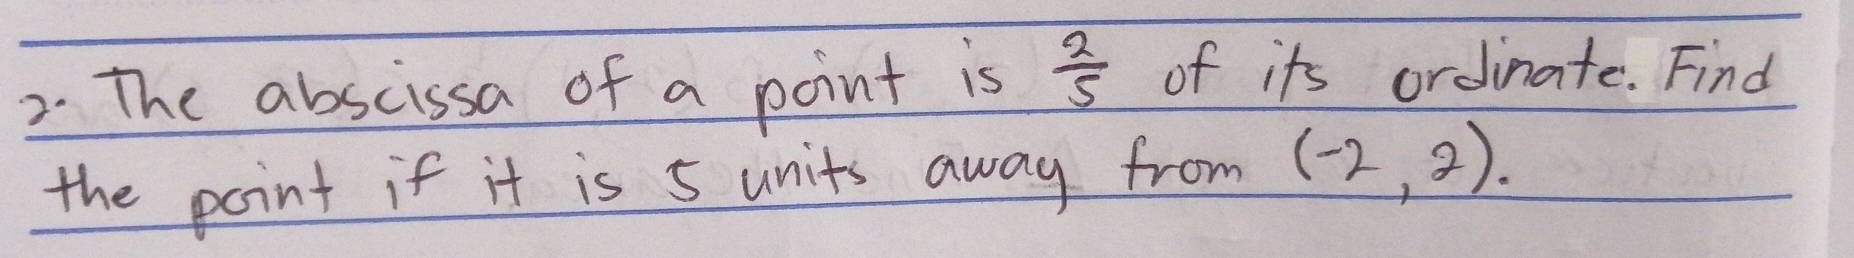 2. The abscissa of a point is 2/5 of its ordinate. Find
the point if it is 5 units away from (-2, 2).